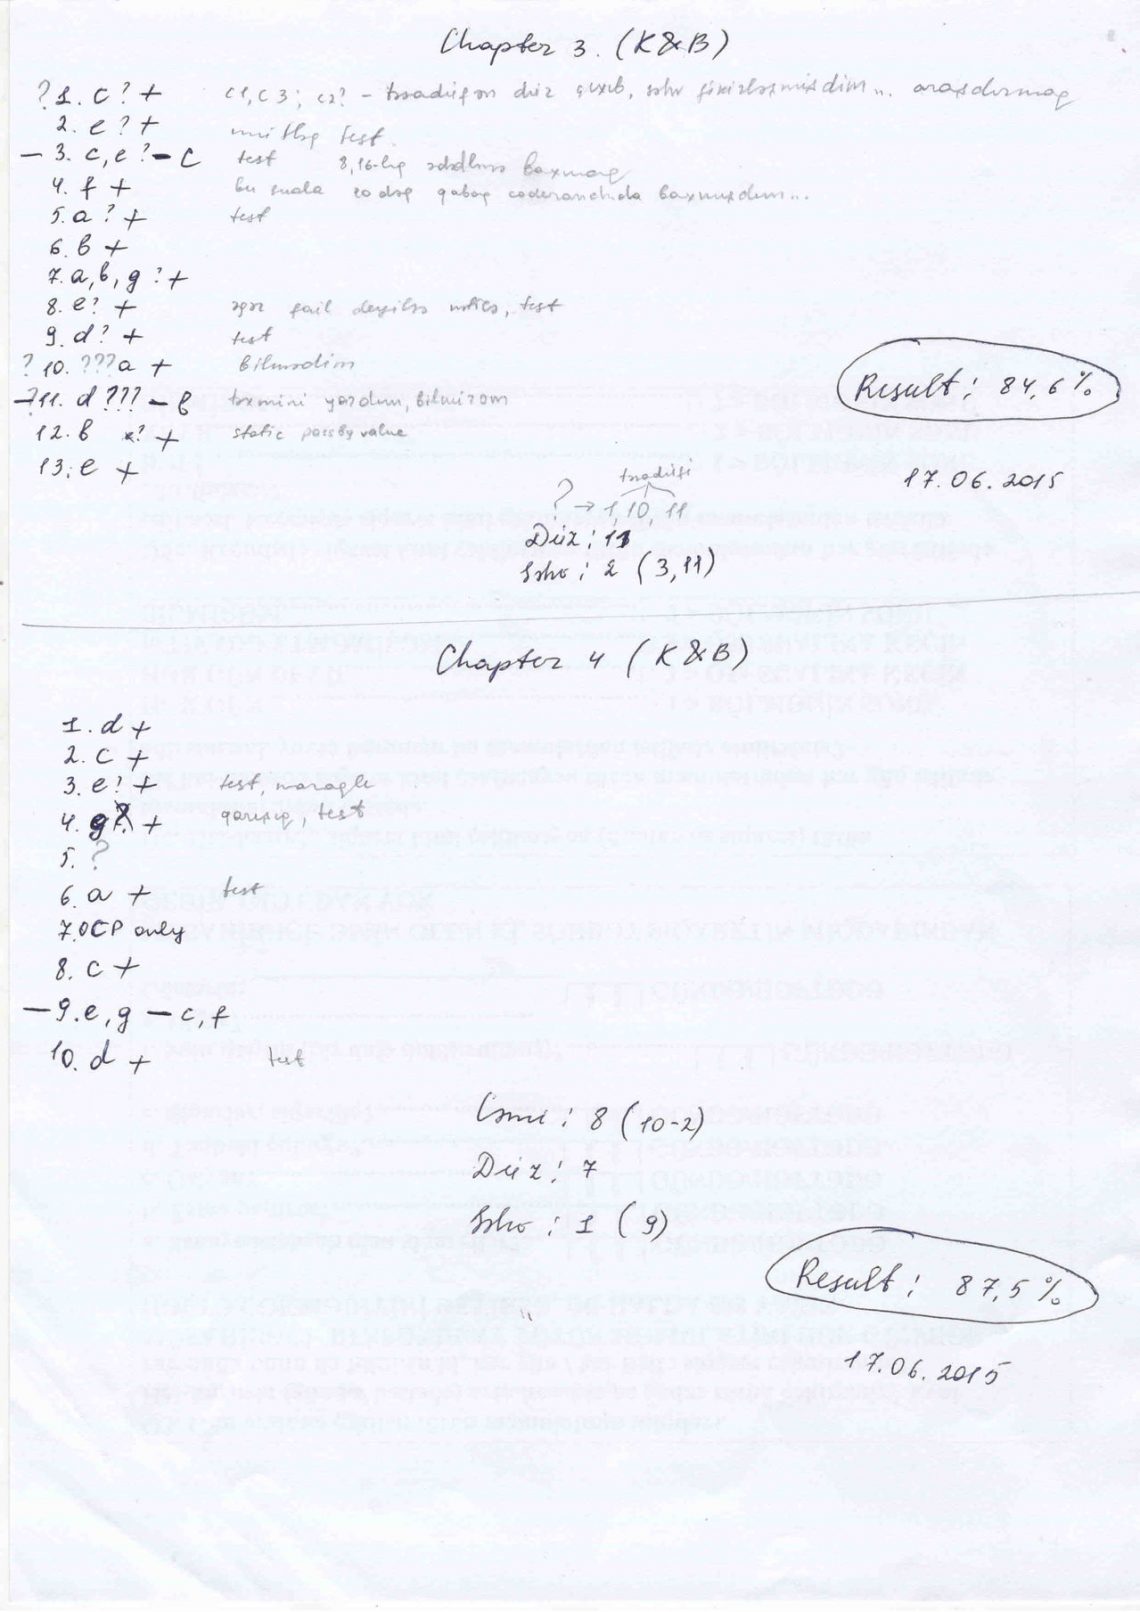 Chapter 3. (K&B)
? 1. c ? + c1, c3; c2? - təsadüfən düz çıxıb, səhv fikirləşmişdim... araşdırmaq
2. e ? + mütləq test
- 3. c, e ? - c test 8,16-lıq ədədlərə baxmaq
4. f + bu suala qabaq coderanchda baxmışdım...
5. a ? + test
6. b +
7. a, b, g ? +
8. e? + əgər fail deyilsə test
9. d? + test
? 10. ???a + bilmədim
-?11. d ??? - b təxmini yazdım, bilmirəm
12. b ? + static pass by value
13. e +
Result: 84,6%
17.06.2015
təsadüfi
? → 1, 10, 11
Düz: 11
Səhv: 2 (3,11)
Chapter 4 (K&B)
1. d +
2. c +
3. e? + test, maraqlı
4. g? + qarışıq, test
5. ?
6. a + test
7. OCP only
8. c +
- 9. e, g - c, f
10. d + test
Cəmi: 8 (10-2)
Düz: 7
Səhv: 1 (9)
Result: 87,5%
17.06.2015